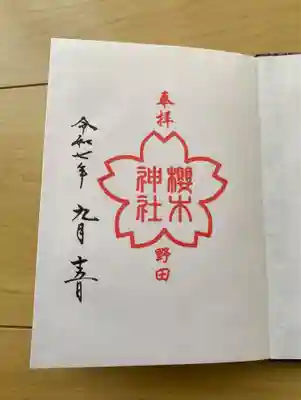 奉拝
櫻木
神社
野田
令和七年 九月 十五日